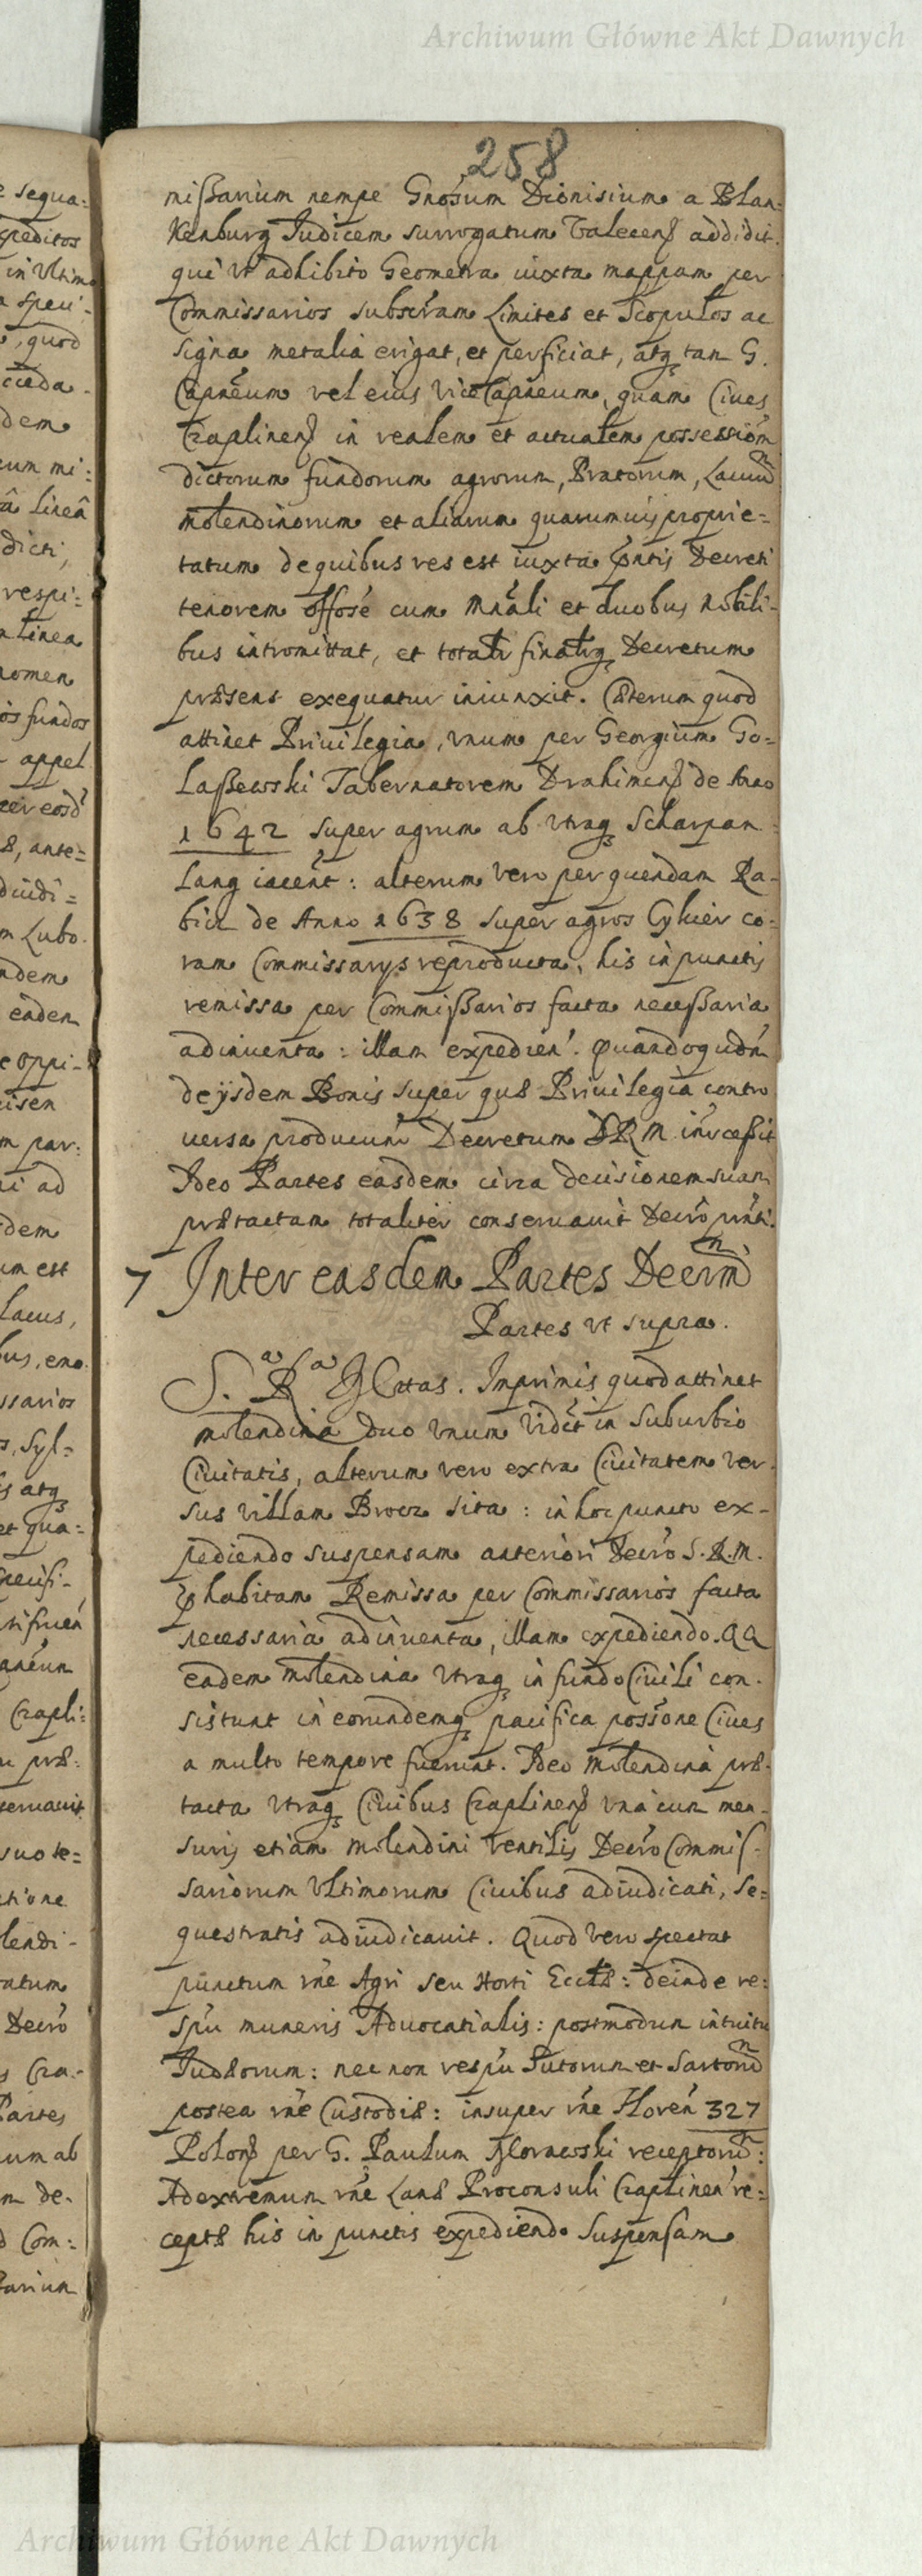 Archiwum Główne Akt Dawnych
258
missarium nempe Gnosum Dionisium a Blan-
kenburg Iudicem surrogatum Valecen addidit.
qui ut adhibito Geometra iuxta mappam per
Commissarios subscram Limites et Scopulos ac
signa metalia erigat, et perficiat, atq tan G.
Capneum vel eius viceCapneum, quam Ciues
Craplinen in realem et actualem possession
dictorum fundorum agrorum, Pratorum, Lacuu
molendinorum et aliarum quarumuis proprie=
tatum de quibus res est iuxta pntis Decreti
tenorem offose cum Mnali et duobus nobili-
bus intromittat, et totalr finalrq Decretum
præsens exequatur iniunxit. Cæterum quod
attinet Priuilegia, vnum per Georgium Go=
laßewski Tabernatorem Drahimen de Anno
1642 super agrum ab vtraq Scharpan-
Lang iacent: alterum vero per quendam Ra-
bicz de Anno 1638 super agros Cykier co-
ram Commissarys reproducta, his in punctis
remissa per Commißarios facta neceßaria
adinuenta: illam expedien. Quandoqudm
de ijsdem Bonis super quæ Priuilegia contro
uersa producunr Decretum SRM inrceßit
Ideo Partes easdem circa decisionem suam
prætactam totaliter conseruauit Decro pnti.
7 Inter easdem Partes Decrm
Partes vt supra.
S. R a Mttas. Imprimis quod attinet
molendina duo vnum vidct in suburbio
Ciuitatis, alterum vero extra Ciuitatem ver-
sus villam Brocz sita: in hoc puncto ex-
pediendo suspensam anteriori Decro S.R.M.
phabitam Remissa per Commissarios facta
necessaria adinuenta, illam expediendo. QQ
eadem molendina vtraq in fundo Ciuili con-
sistunt in eorundemq pacifica possone Ciues
a multo tempore fuerunt. Ideo molendina præ-
tacta vtraq Ciuibus Craplinen vna cum men-
suris etiam molendini ventilis Decro Commis-
sariorum vltimorum Ciuibus adiudicati, se=
questratis adiudicauit. Quod vero spectat
punctum rne Agri seu Horti Ecclæ: deinde re:
spu muneris Aduocatialis: postmodum intuitu
Iudæorum: nec non respu Sutorum et Sartorum
postea rne Custodiæ: insuper rne Floren 327
Polon per G. Paulum receptorum:
Ad extremum rne Lanæ Proconsuli Craplinen re=
ceptæ his in punctis expediendo suspensam
Archiwum Główne Akt Dawnych